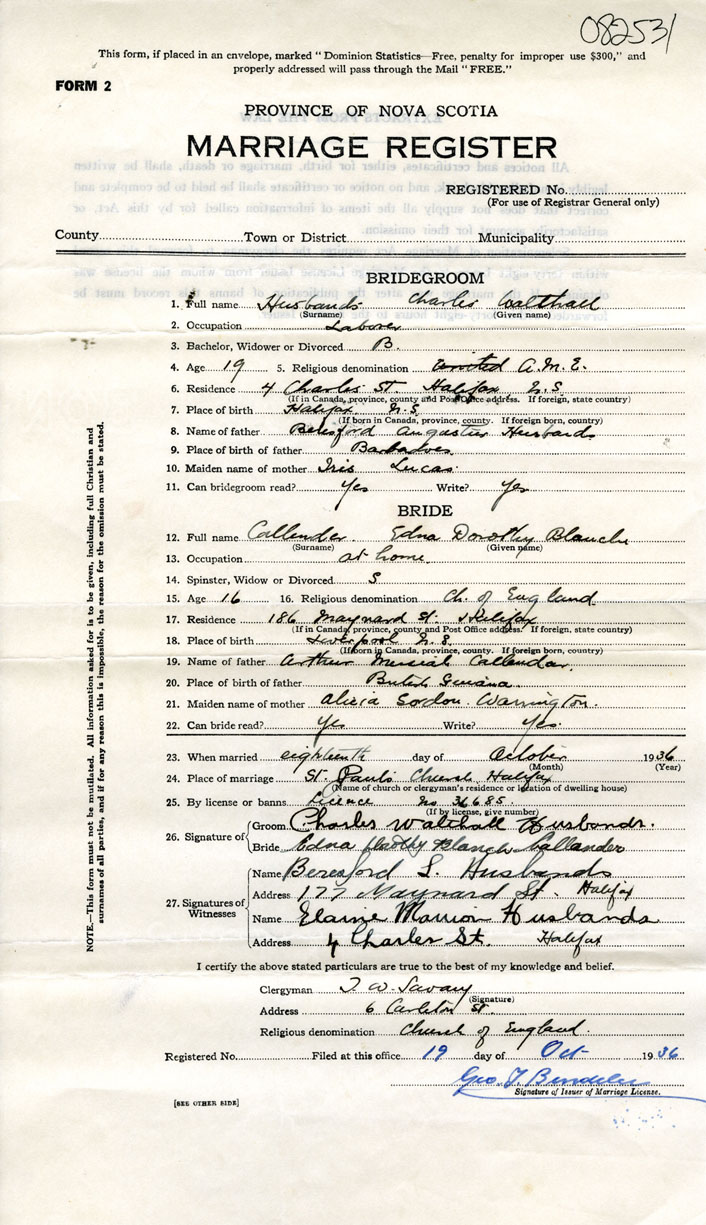 08253
This form, if placed in an envelope, marked "Dominion Statistics—Free, penalty for improper use $300," and
properly addressed will pass through the Mail "FREE."
FORM 2
PROVINCE OF NOVA SCOTIA
MARRIAGE REGISTER
REGISTERED No.
(For use of Registrar General only)
County Town or District Municipality
BRIDEGROOM
1. Full name Husbands Charles Walthall
(Surname) (Given name)
2. Occupation Laborer
3. Bachelor, Widower or Divorced B.
4. Age 19 5. Religious denomination United A.M.E.
6. Residence 4 Charles St. Halifax N.S.
(If in Canada, province, county and Post Office address. If foreign, state country)
7. Place of birth Halifax N.S.
(If born in Canada, province, county. If foreign born, country)
8. Name of father Beresford Augustus Husbands
9. Place of birth of father Barbadoes
10. Maiden name of mother Iris Lucas
11. Can bridegroom read? Yes Write? Yes
BRIDE
12. Full name Callender Edna Dorothy Blanche
(Surname) (Given name)
13. Occupation at home
14. Spinster, Widow or Divorced S
15. Age 16 16. Religious denomination Ch. of England
17. Residence 186 Maynard St. Halifax
(If in Canada, province, county and Post Office address. If foreign, state country)
18. Place of birth Liverpool N.S.
(If born in Canada, province, county. If foreign born, country)
19. Name of father Arthur Callendar
20. Place of birth of father British Guiana
21. Maiden name of mother Alicia Gordon Warrington
22. Can bride read? Yes Write? Yes
23. When married eighteenth day of October 1936
(Month) (Year)
24. Place of marriage St. Pauls Church Halifax
(Name of church or clergyman's residence or location of dwelling house)
25. By license or banns Licence No 36685
(If by license, give number)
26. Signature of Groom Charles Walthall Husbands.
Bride Edna Dorothy Blanch Callander
27. Signatures of Witnesses Name Beresford L. Husbands
Address 177 Maynard St. Halifax
Name Elaine Marion Husbands
Address 4 Charles St. Halifax
I certify the above stated particulars are true to the best of my knowledge and belief.
Clergyman T. W. Savary
(Signature)
Address 6 Carleton St.
Religious denomination Church of England.
Registered No. Filed at this office 19 day of Oct 1936
Geo. T.
Signature of Issuer of Marriage License.
[SEE OTHER SIDE]
NOTE.—This form must not be mutilated. All information asked for is to be given, including full Christian and
surnames of all parties, and if for any reason this is impossible, the reason for the omission must be stated.